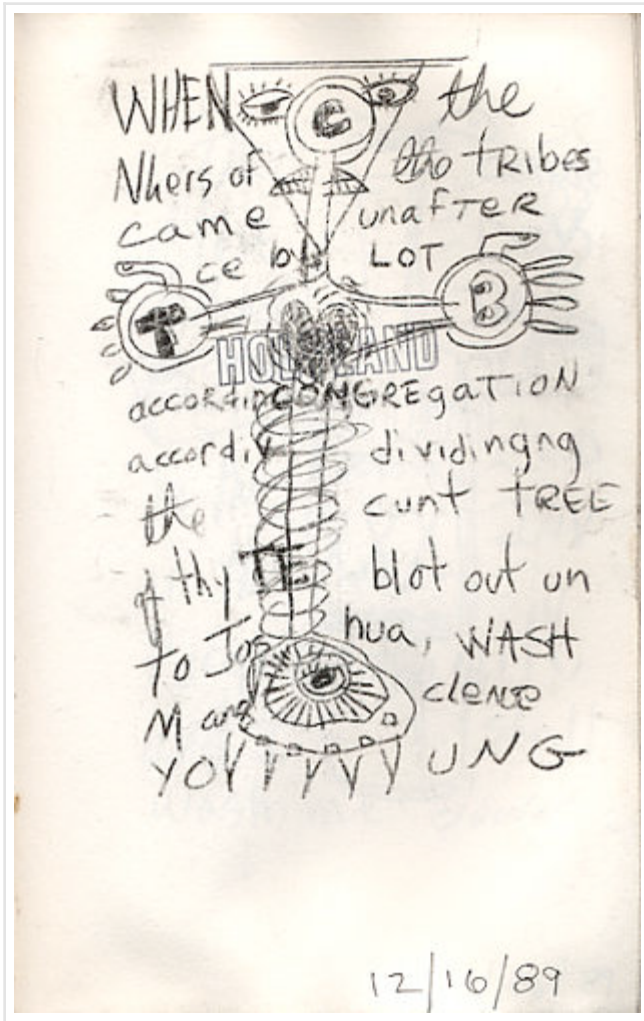 WHEN C the
Nhers of the tRIBES
came unaFTER
ce by LOT
T B
HOLLAND
accordinCONGREgaTION
accordiv dividingng
the cunt TREE
thy blot out un
To Jos hua, WASH
M and clense
YO UNG
12/16/89